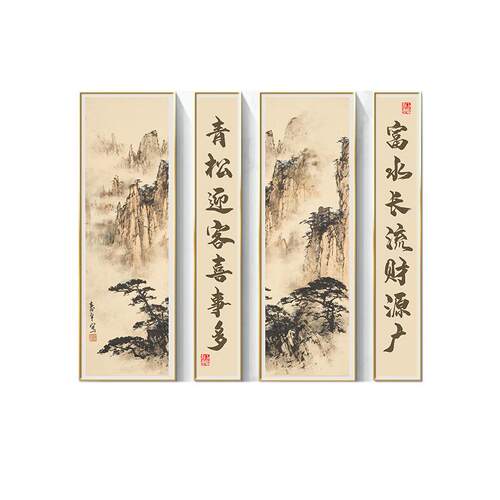 富水长流财源广
青松迎客喜事多